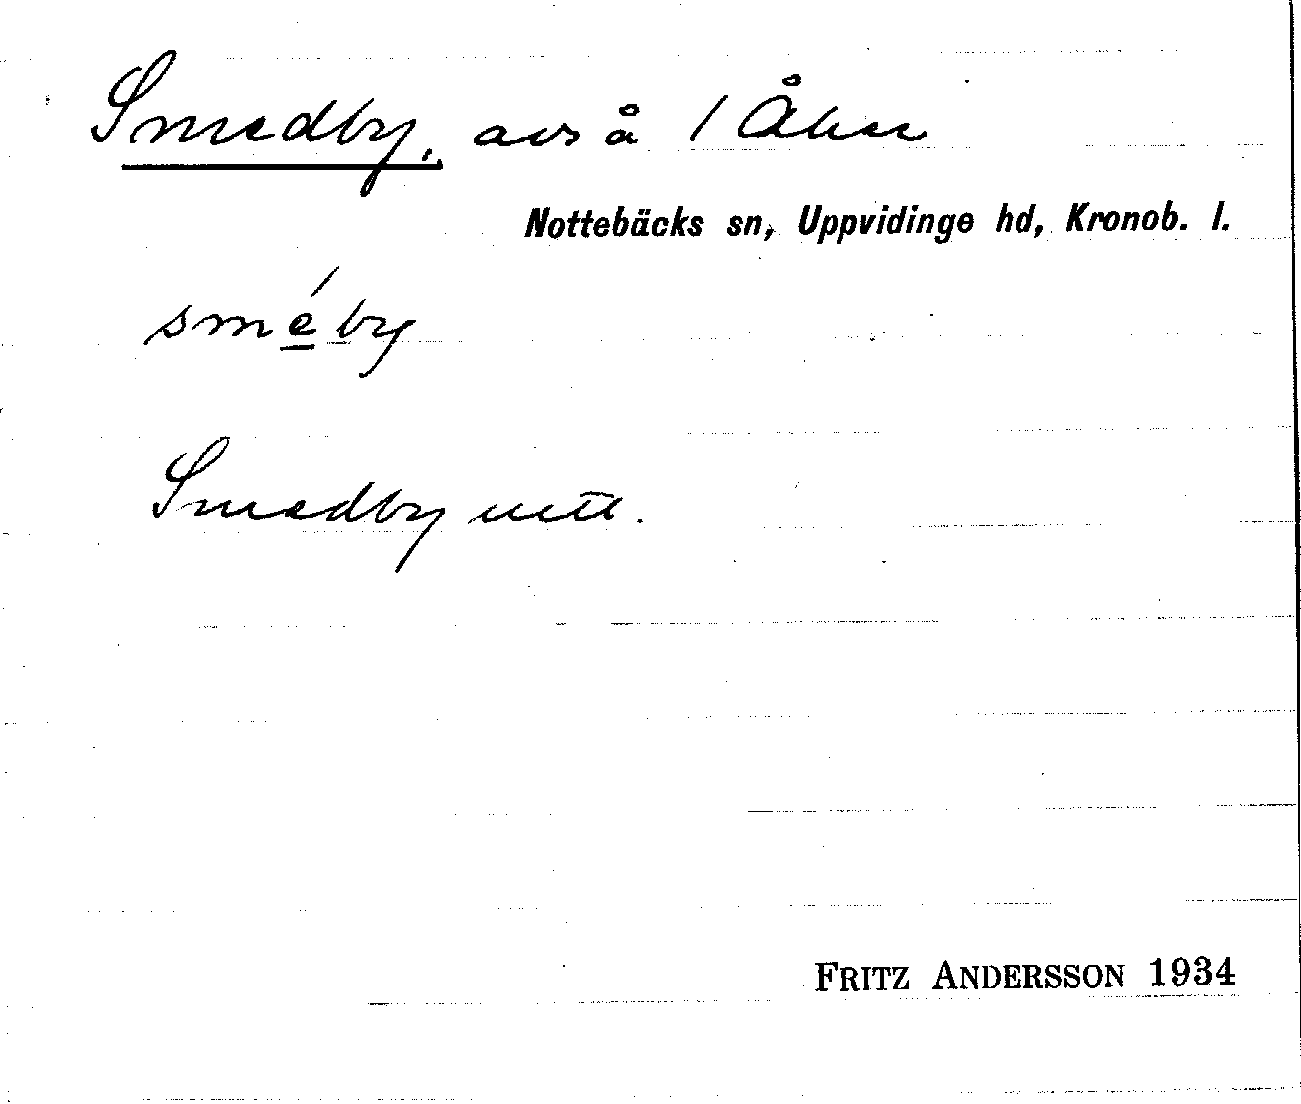 Smedby, avs å 1 Åker
Nottebäcks sn, Uppvidinge hd, Kronob. l.
sméby
Smedby
FRITZ ANDERSSON 1934